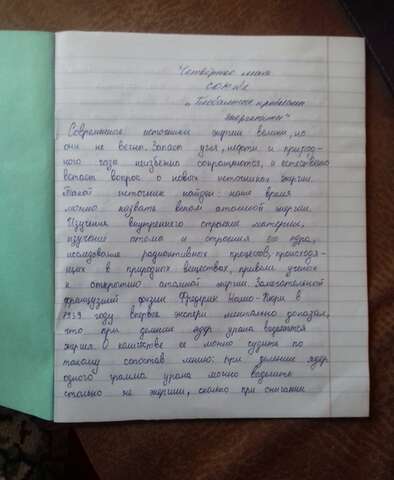 Четвёртое мая
СОЧ №2
"Глобальные проблемы
энергетики"
Современные источники энергии велики, но
они не вечны. Запасы угля, нефти и природ-
ного газа неизбежно сокращаются, и естественно
встает вопрос о новых источниках энергии.
Такой источник найден: наше время
можно назвать веком атомной энергии.
Изучение внутреннего строения материи,
изучение атома и строения его ядра,
исследование радиоактивных процессов, происходя-
щих в природных веществах, привели ученых
к открытию атомной энергии. Замечательный
французский физик Фредерик Жолио-Кюри в
1939 году впервые экспери ментально доказал,
что при делении ядер урана выделяется
энергия. О количестве ее можно судить по
такому сопостав лению: при делении ядер
одного грамма урана можно выделить
столько же энергии, сколько при сжигании